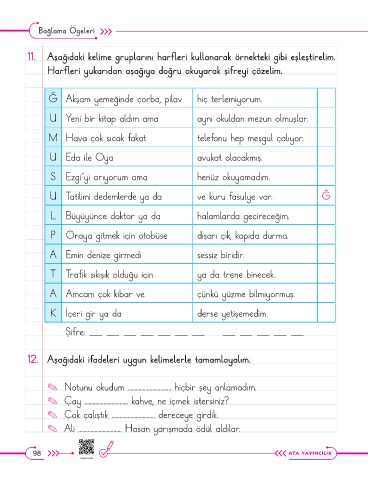 Bağlama Ögeleri
11. Aşağıdaki kelime gruplarını harfleri kullanarak örnekteki gibi eşleştirelim.
Harfleri yukarıdan aşağıya doğru okuyarak şifreyi çözelim.
Ğ Akşam yemeğinde çorba, pilav hiç terlemiyorum.
U Yeni bir kitap aldım ama aynı okuldan mezun olmuşlar.
M Hava çok sıcak fakat telefonu hep meşgul çalıyor.
U Eda ile Oya avukat olacakmış.
S Ezgi'yi arıyorum ama henüz okuyamadım.
U Tatilimi dedemlerde ya da ve kuru fasulye var. Ğ
L Büyüyünce doktor ya da halamlarda geçireceğim.
P Oraya gitmek için otobüse dışarı çık, kapıda durma.
A Emin denize girmedi sessiz biridir.
T Trafik sıkışık olduğu için ya da trene binecek.
A Amcam çok kibar ve çünkü yüzme bilmiyormuş.
K İçeri gir ya da derse yetişemedim.
Şifre: __ __ __ __ __ __ __ __ __ __ __ __
12. Aşağıdaki ifadeleri uygun kelimelerle tamamlayalım.
Notunu okudum .................... hiçbir şey anlamadım.
Çay .................... kahve, ne içmek istersiniz?
Çok çalıştık .................... dereceye girdik.
Ali .................... Hasan yarışmada ödül aldılar.
98
ATA YAYINCILIK